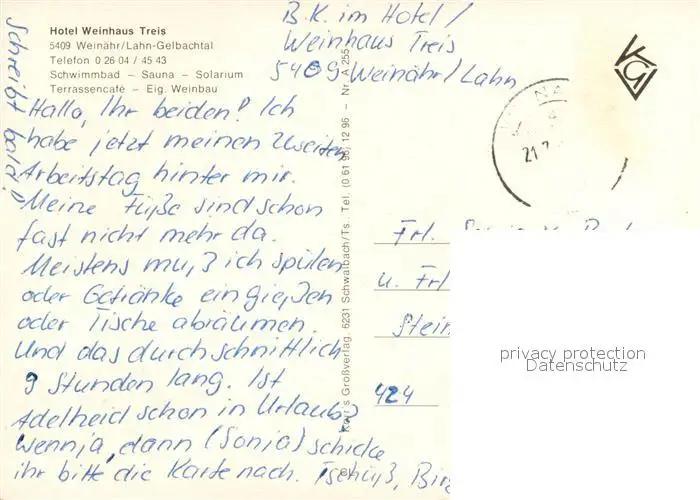 Hotel Weinhaus Treis
5409 Weinähr/Lahn-Gelbachtal
Telefon 0 26 04 / 45 43
Schwimmbad – Sauna – Solarium
Terrassencafé – Eig. Weinbau
B.K. im Hotel/
Weinhaus Treis
5409 Weinähr/Lahn
Hallo, Ihr beiden! Ich
habe jetzt meinen zweiten
Arbeitstag hinter mir.
Meine Füße sind schon
fast nicht mehr da.
Meistens muß ich spülen
oder Getränke eingießen
oder Tische abräumen.
Und das durchschnittlich
9 Stunden lang. Ist
Adelheid schon in Urlaub?
Wenn ja, dann (Sonja) schicke
ihr bitte die Karte nach. Tschüß,
Schreibt bald!
Korr's Großverlag, 6231 Schwalbach/Ts., Tel. (0 61 96) 12 96 – Nr. A 255
KGV
21.7.
Frl.
u. Frl
Stein
424
privacy protection
Datenschutz